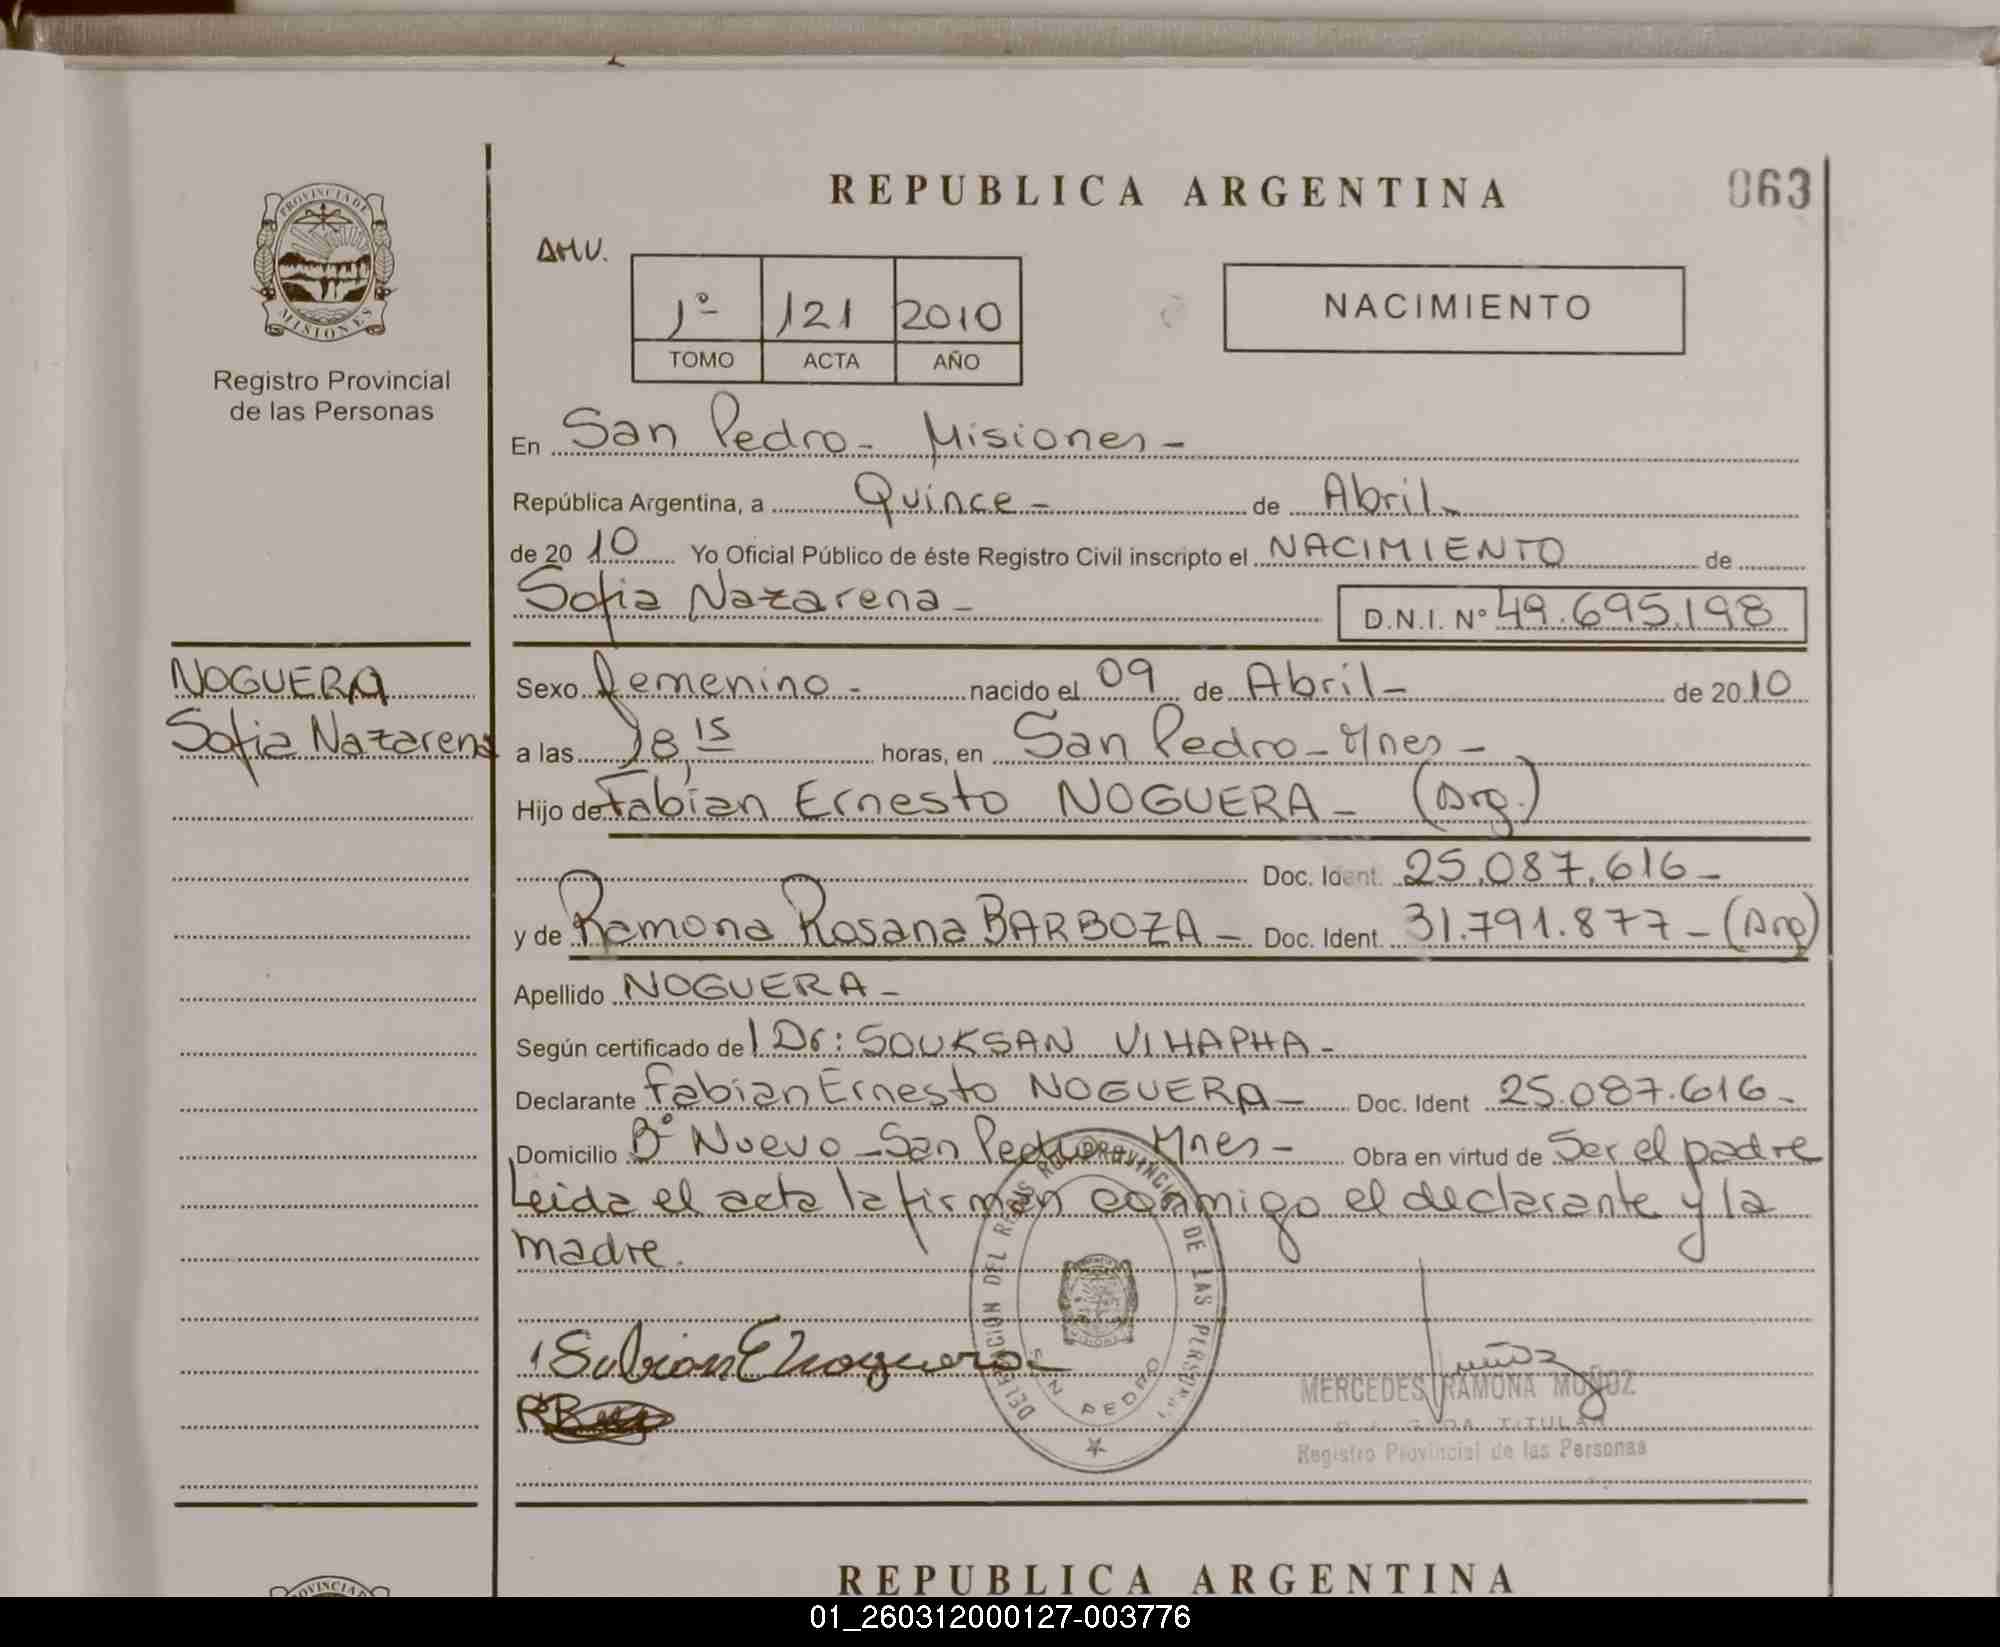 REPUBLICA ARGENTINA
063
PROVINCIA DE
MISIONES
Registro Provincial
de las Personas
AMV.
1º 121 2010
TOMO ACTA AÑO
NACIMIENTO
En San Pedro - Misiones -
República Argentina, a Quince - de Abril -
de 2010 Yo Oficial Público de éste Registro Civil inscripto el NACIMIENTO de
Sofia Nazarena -
D.N.I. Nº 49.695.198
NOGUERA
Sofia Nazarena
Sexo femenino - nacido el 09 de Abril - de 2010
a las 18,15 horas, en San Pedro - Mnes -
Hijo de Fabian Ernesto NOGUERA - (Arg.)
Doc. Ident. 25.087.616 -
y de Ramona Rosana BARBOZA - Doc. Ident. 31.791.877 - (Arg)
Apellido NOGUERA -
Según certificado de l Dr: SOUKSAN VIHAPHA -
Declarante Fabian Ernesto NOGUERA - Doc. Ident 25.087.616 -
Domicilio Bº Nuevo - San Pedro - Mnes - Obra en virtud de Ser el padre
Leida el acta la firman conmigo el declarante y la
madre.
Fabian E Noguera
RB
DELEGACION DEL REGISTRO PROVINCIAL DE LAS PERSONAS
SAN PEDRO
MERCEDES RAMONA MUÑOZ
TITULAR
Registro Provincial de las Personas
REPUBLICA ARGENTINA
PROVINCIA DE
01_260312000127-003776